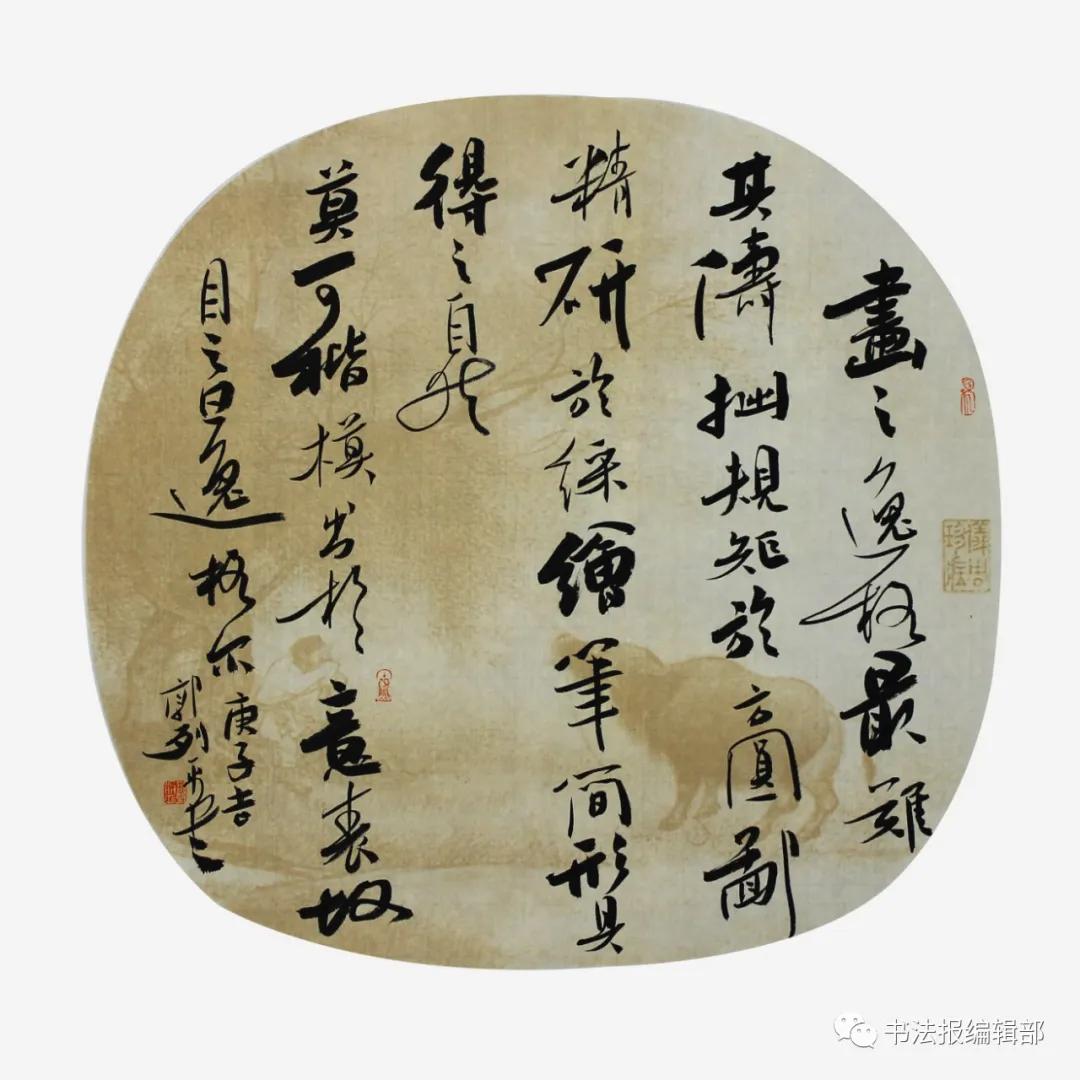 畫之逸格最難
其儔拙規矩於方圓鄙
精研於綵繪筆簡形具
得之自然
莫可楷模出於意表故
目之曰逸格尔
庚子
郭列平
书法报编辑部